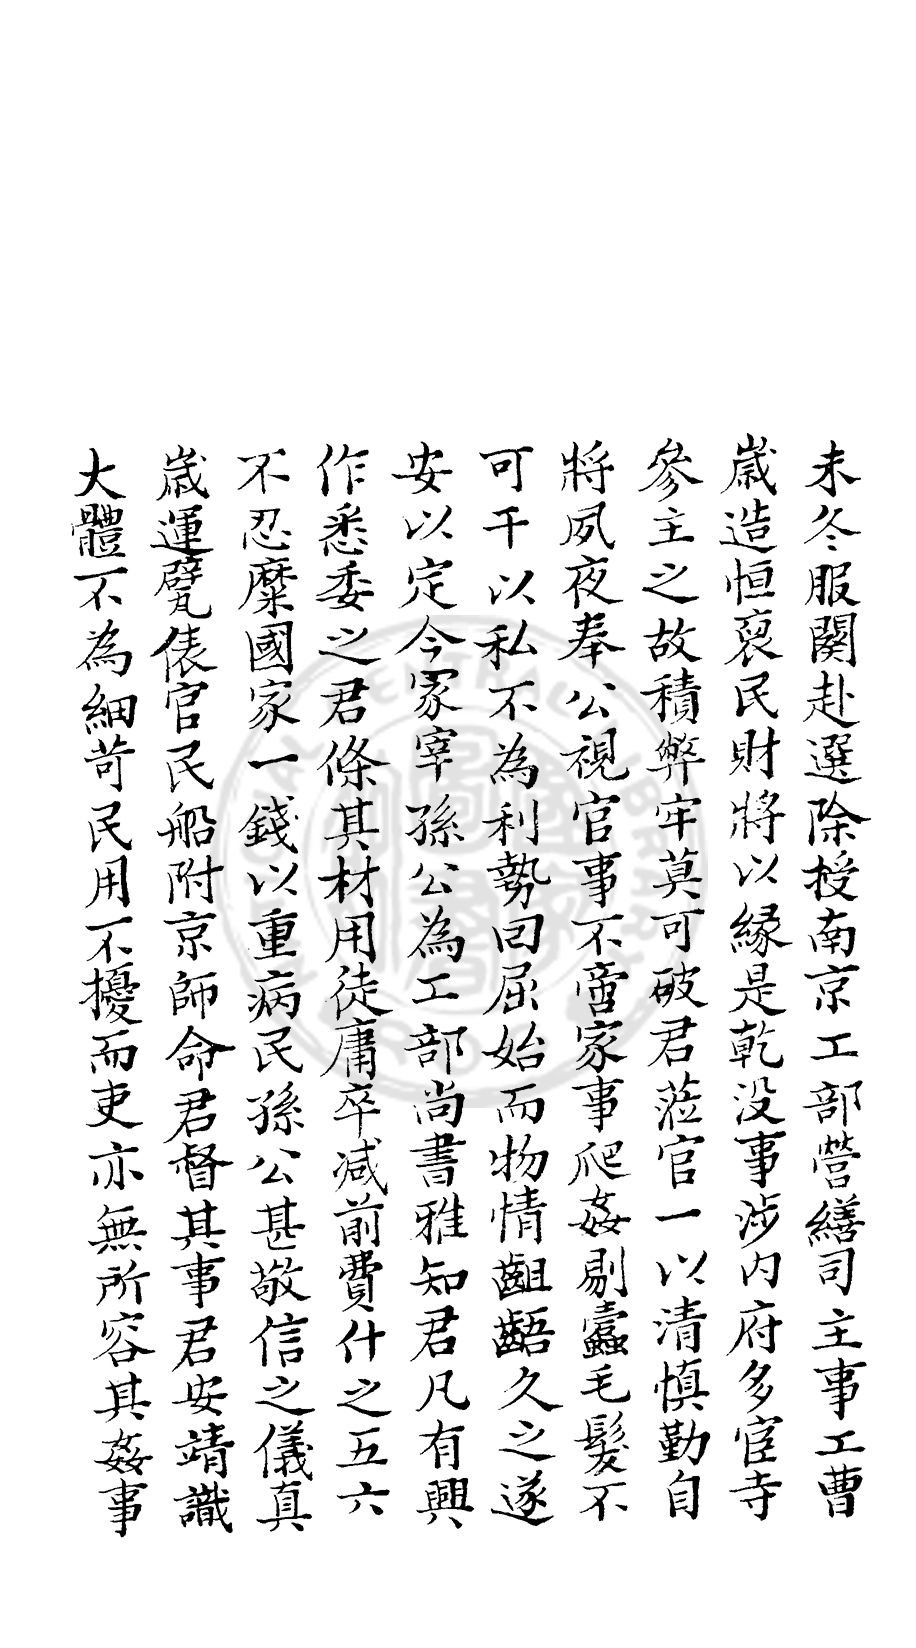 未冬服闋赴選除授南京工部營繕司主事工曹
歲造恒裒民財將以緣是乾没事涉内府多宦寺
參主之故積弊牢莫可破君蒞官一以清慎勤自
將夙夜奉公視官事不啻家事爬姦剔蠹毛髮不
可干以私不為利勢回屈始而物情齟齬久之遂
安以定今冢宰孫公為工部尚書雅知君凡有興
作悉委之君條其材用徒庸卒减前費什之五六
不忍糜國家一錢以重病民孫公甚敬信之儀真
歲運甓俵官民船附京師命君督其事君安靖識
大體不為細苛民用不擾而吏亦無所容其姦事